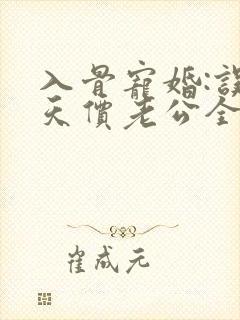 入骨寵婚:誤
天價老公全
崔成元